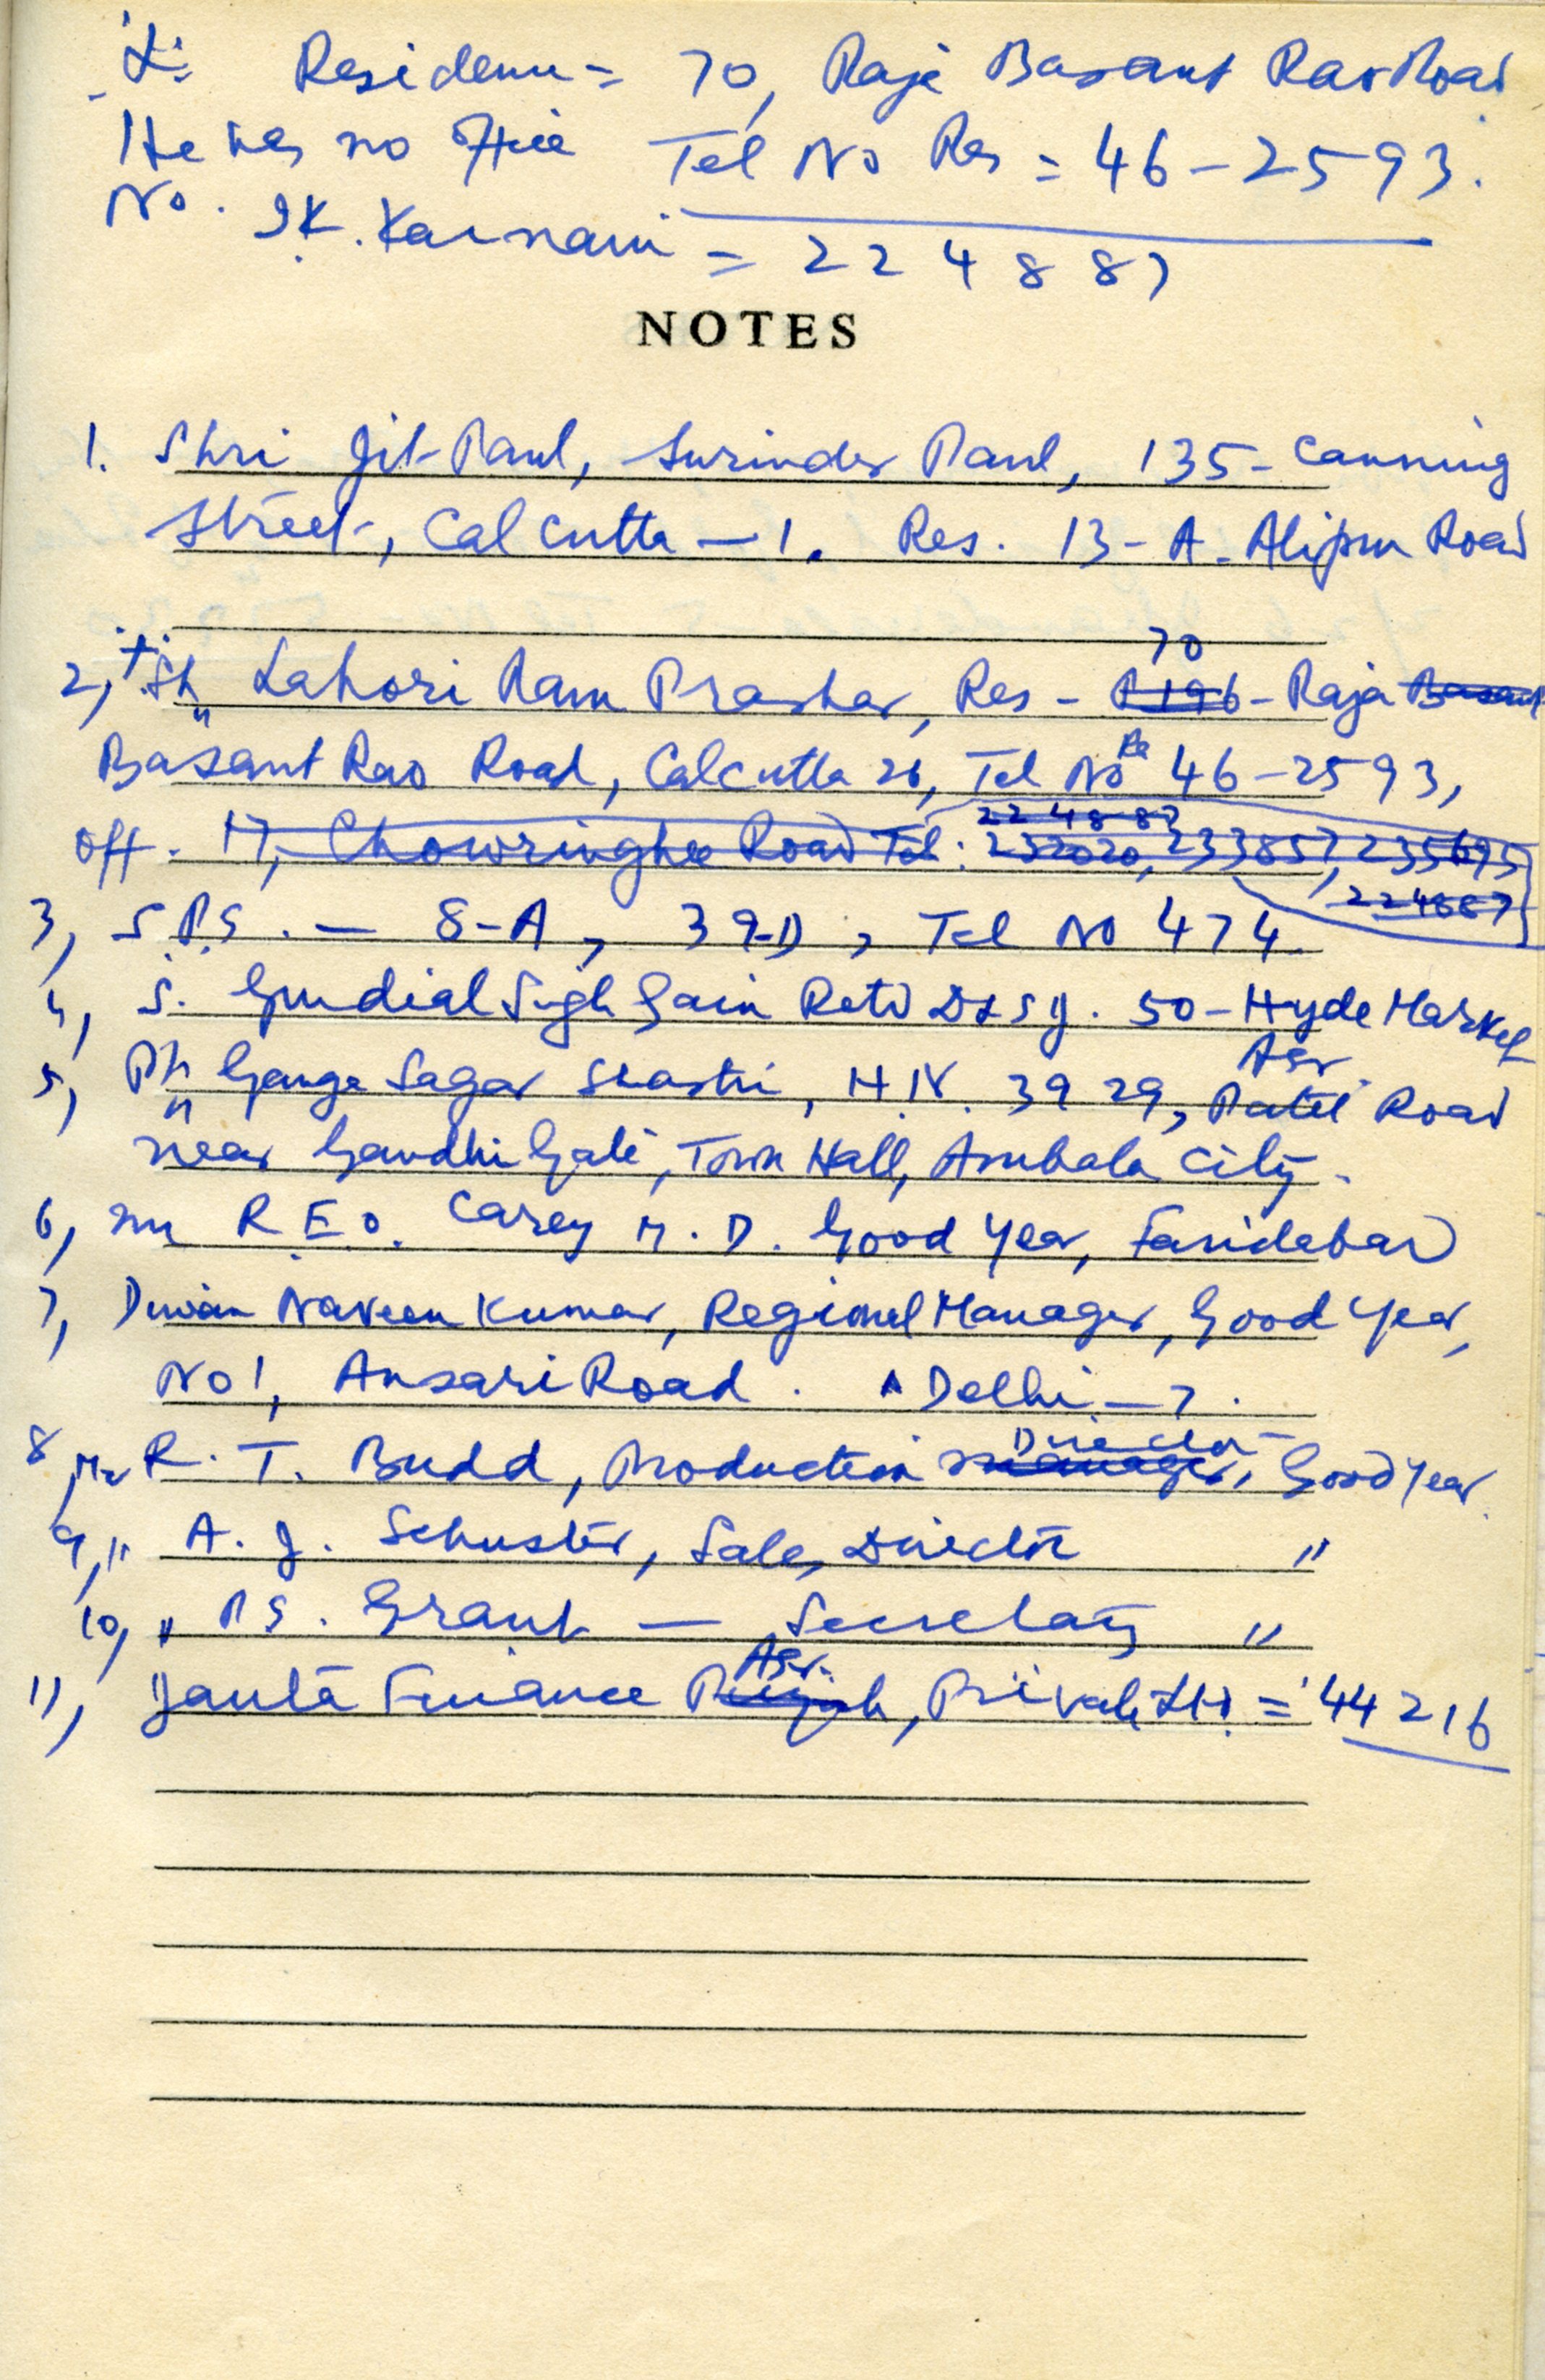 Residence = 70, Raja Basant Rao Road
He has no office Tel No Res = 46-2593.
No. J.K. Karnani = 224887
NOTES
1. Shri Jit Paul, Surinder Paul, 135- Canning
Street, Calcutta-1. Res. 13-A- Alipur Road
70
2, Sh Lahori Ram Prashar, Res - P 196 - Raja Basant
Basant Rao Road, Calcutta 26, Tel No Re 46-2593,
224887
off. 17, Chowringhee Road Tel: 232020, 233857, 235695
224887
3, S.P.S. - 8-A, 39-D, Tel No 474.
4, S. Gurdial Singh Retd. 50-Hyde Market
Asr.
5, Pt Ganga Sagar Shastri, H.N. 3929, Patel Road
near Gandhi Gate, Town Hall, Ambala City.
6, Mr R.E.O. Carey M.D. Good Year, Faridabad
7, Dewan Naveen Kumar, Regional Manager, Good Year,
No 1, Ansari Road. Delhi-7.
Director
8, Mr R. T. Budd, Production manager, Good Year.
9, " A. J. Schuster, Sales Director "
10, " P.S. Grant - Secretary "
Asr.
11, Janta Finance Punjab, Private Ltd. = 44216